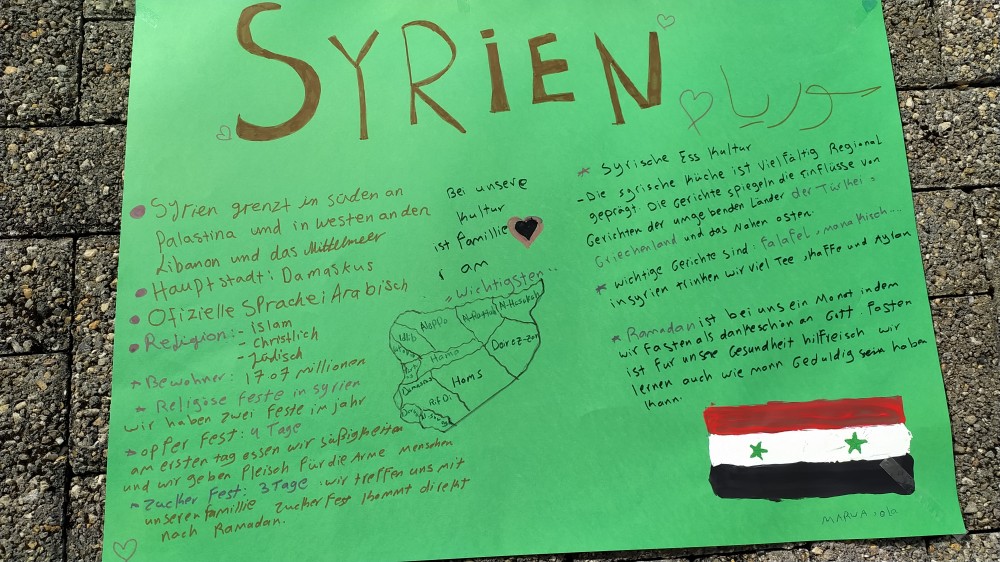 SYRIEN
سوريا
Syrien grenzt im süden an
Palästina und in westen an den
Libanon und das Mittelmeer
Hauptstadt: Damaskus
Ofizielle Sprache: Arabisch
Religion: - Islam
- Christlich
- Jüdisch
* Bewohner: 17 07 millionen
* Religiöse Feste in syrien
wir haben zwei Feste im jahr
* opfer Fest: 4 Tage
am ersten tag essen wir süßigkeiten
und wir geben Fleisch für die Arme menschen
- Zucker Fest: 3 Tage wir treffen uns mit
unserer famillie Zucker Fest kommt direkt
nach Ramadan.
Bei unsere
Kultur
ist Famillie
am
"Wichtigsten"
Idlib
Aleppo
Al-Hasakah
Hama
Homs
* Syrische Ess Kultur
- Die syrische Küche ist vielfältig Regional
geprägt. Die Gerichte spiegeln die Einflüsse von
Gerichten der umgebenden Länder der Türkei,
Griechenland und das Nahen osten.
* wichtige Gerichte sind: Falafel, manakisch...
in syrien trinken wir viel Tee, khaffe und Ayran
* Ramadan ist bei uns ein Monat indem
wir Fasten als dankeschön an Gott. Fasten
ist für unsere Gesundheit hilfreisch wir
lernen auch wie mann Geduldig sein haben
kann.
MARWA, ola